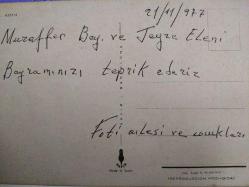 21/11/977
Muzaffer Bey. ve Teyze Eleni
Bayramınızı tebrik ederiz
Foti ailesi ve çocukları